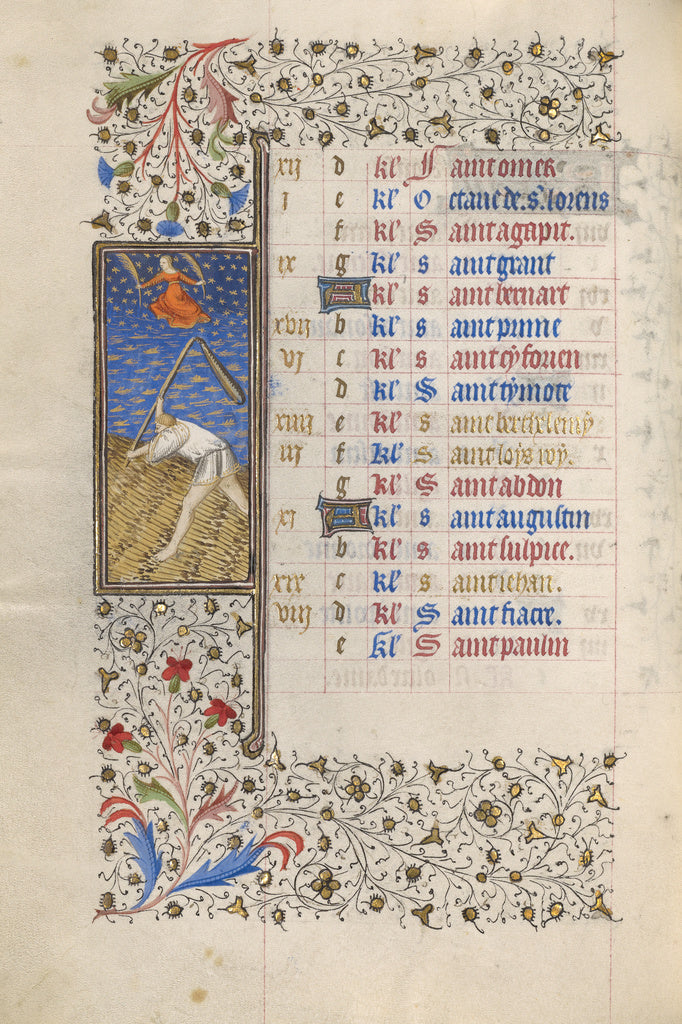 xij d kl' S aint omer
j e kl' O ctaue de. s'. lorens
f kl' S aint agapit.
ix g kl' s aint grant
A kl' s aint bernart
xvij b kl' s aint prime
vj c kl' s aint cyforien
d kl' S aint tymote
xiiij e kl' s aint berthelemy
iij f kl' S aint loys roy.
g kl' S aint abdon
xj A kl' s aint augustin
b kl' s aint sulpice.
xix c kl' s aint iehan.
viij d kl' S aint fiacre.
e kl' S aint paulin